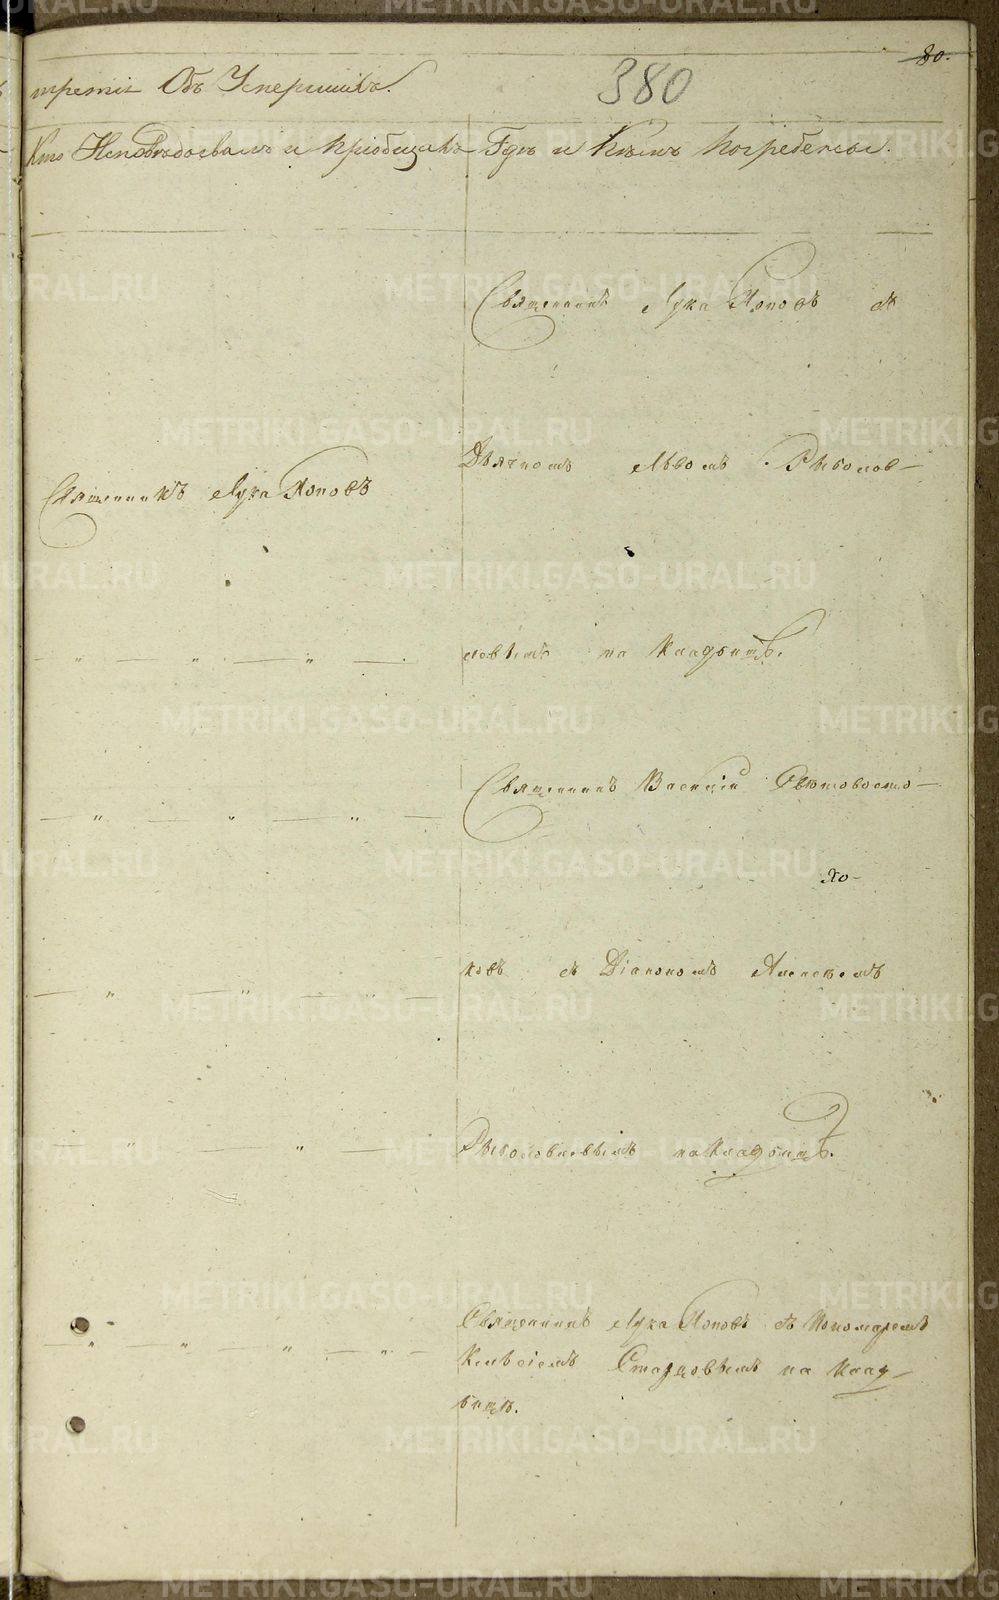 80.
третiя Объ Умершихъ.
380
Кто Исповѣдовалъ и пріобщалъ
Гдѣ и Кѣмъ Погребены.
Священникъ Лука Поповъ съ
Дьячкомъ Львомъ Рыболов-
Священникъ Лука Поповъ
— „ — „ — „ —
левымъ на Кладбищѣ.
Священникъ Василій Свѣтовосто-
— „ — „ — „ —
хо-
ковъ съ Діакономъ Алексѣемъ
— „ — „ —
Рыболовлевымъ на Кладбищѣ.
— „ — „ —
Священникъ Лука Поповъ съ Пономаремъ
— „ — „ — „ — „ —
Старцовымъ на Клад-
бищѣ.
METRIKI.GASO-URAL.RU